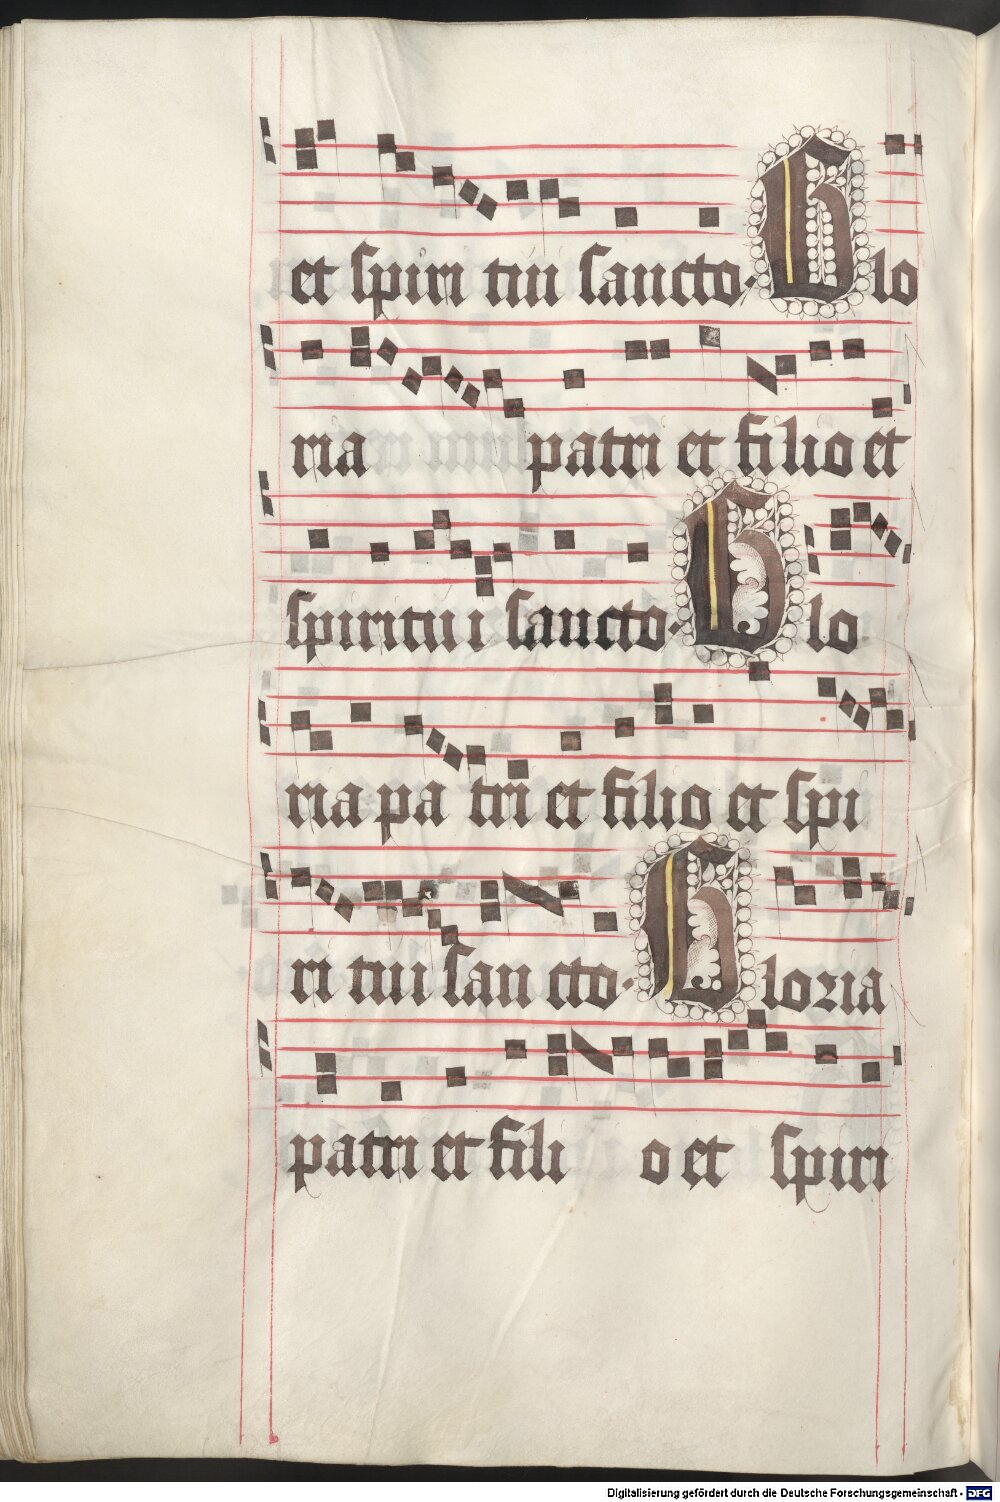 et spiri tui sancto· Glo
ria patri et filio et
spiritui sancto· Glo
ria pa tri et filio et spi
ri tui san cto· Gloria
patri et fili o et spiri
Digitalisierung gefördert durch die Deutsche Forschungsgemeinschaft - DFG